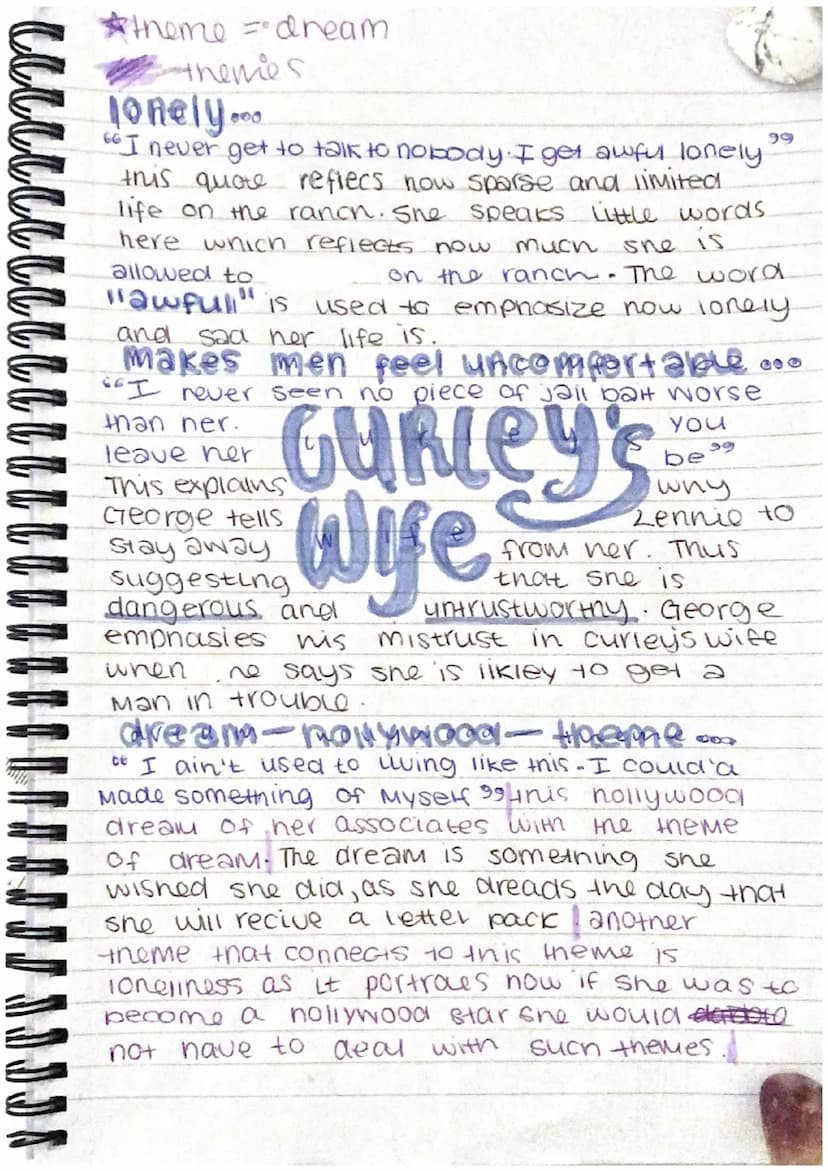 *theme = dream
themes
lonely...
"I never get to talk to nobody. I get awful lonely"
this quote reflecs how sparse and limited
life on the ranch. She speaks little words
here which reflects how much she is
allowed to on the ranch. The word
"awful" is used to emphasize how lonely
and sad her life is.
makes men feel uncomfortable...
"I never seen no piece of jail bait worse
than her. you
leave her be"
This explains why
George tells Lennie to
stay away from her. Thus
suggesting that she is
Curley's
Wife
dangerous and untrustworthy. George
emphasies his mistrust in curley's wife
when he says she is likley to get a
man in trouble.
dream-hollywood-theme...
"I ain't used to living like this. I could'a
made something of myself" this hollywood
dream of her associates with the theme
of dream. The dream is something she
wished she did, as she dreads the day that
she will recive a letter pack another
theme that connects to this theme is
loneliness as it portraes how if she was to
become a hollywood star she would
not have to deal with such themes.